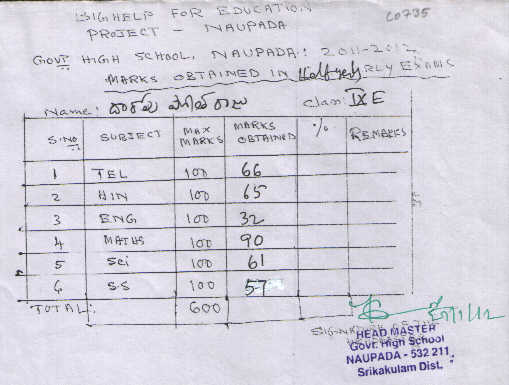 SIG HELP FOR EDUCATION
PROJECT - NAUPADA
C0735
GOVT HIGH SCHOOL, NAUPADA: 2011-2012
MARKS OBTAINED IN Half yearly EXAMS
Name: Class: IX E
S.NO SUBJECT MAX MARKS MARKS OBTAINED % REMARKS
1 TEL 100 66
2 HIN 100 65
3 ENG 100 32
4 MATHS 100 90
5 Sci 100 61
6 S.S 100 57
TOTAL: 600
HEAD MASTER
Govt. High School
NAUPADA - 532 211.
Srikakulam Dist.